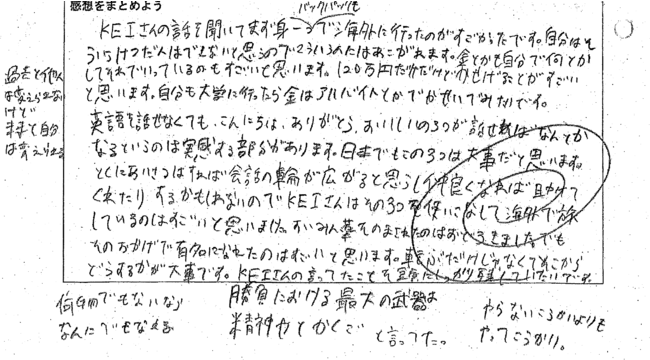 感想をまとめよう
バックパックも
KEIさんの話を聞いてまず身一つで海外に行ったのがすごかったです。自分はそ
ういうけつだんはできないと思うのでこういう人にはあこがれます。金とかも自分で何とか
してそれでいっているのもすごいと思います。120万円だけだけどかせげることがすごい
と思います。自分も大学に行ったら金はアルバイトとかでかせいでみたいです。
英語を話せなくても、こんにちは、ありがとう、おいしいの3つが話せればなんとか
なるというのは実感する部分があります。日本でもこの3つは大事だと思います。
とくにあいさつはすれば会話の輪が広がると思うし仲良くなれば助けて
くれたりするかもしれないのでKEIさんはその3つを使いこなして海外で旅
しているのはすごいと思います。すいみん薬をのまされたのはおどろきましたでも
そのおかげで有名になれたのはすごいと思います。転ぶだけじゃなくてそこから
どうするかが大事です。KEIさんの言ってたことを
しっかり
していたいです。
過去と他人
は変えられない
けど
未来と自分
は変えられる
何者でもないなら
なんにでもなれる
勝負における最大の武器は
精神力とかくご
と言ってた。
やらないこうかいよりも
やってこうかい。